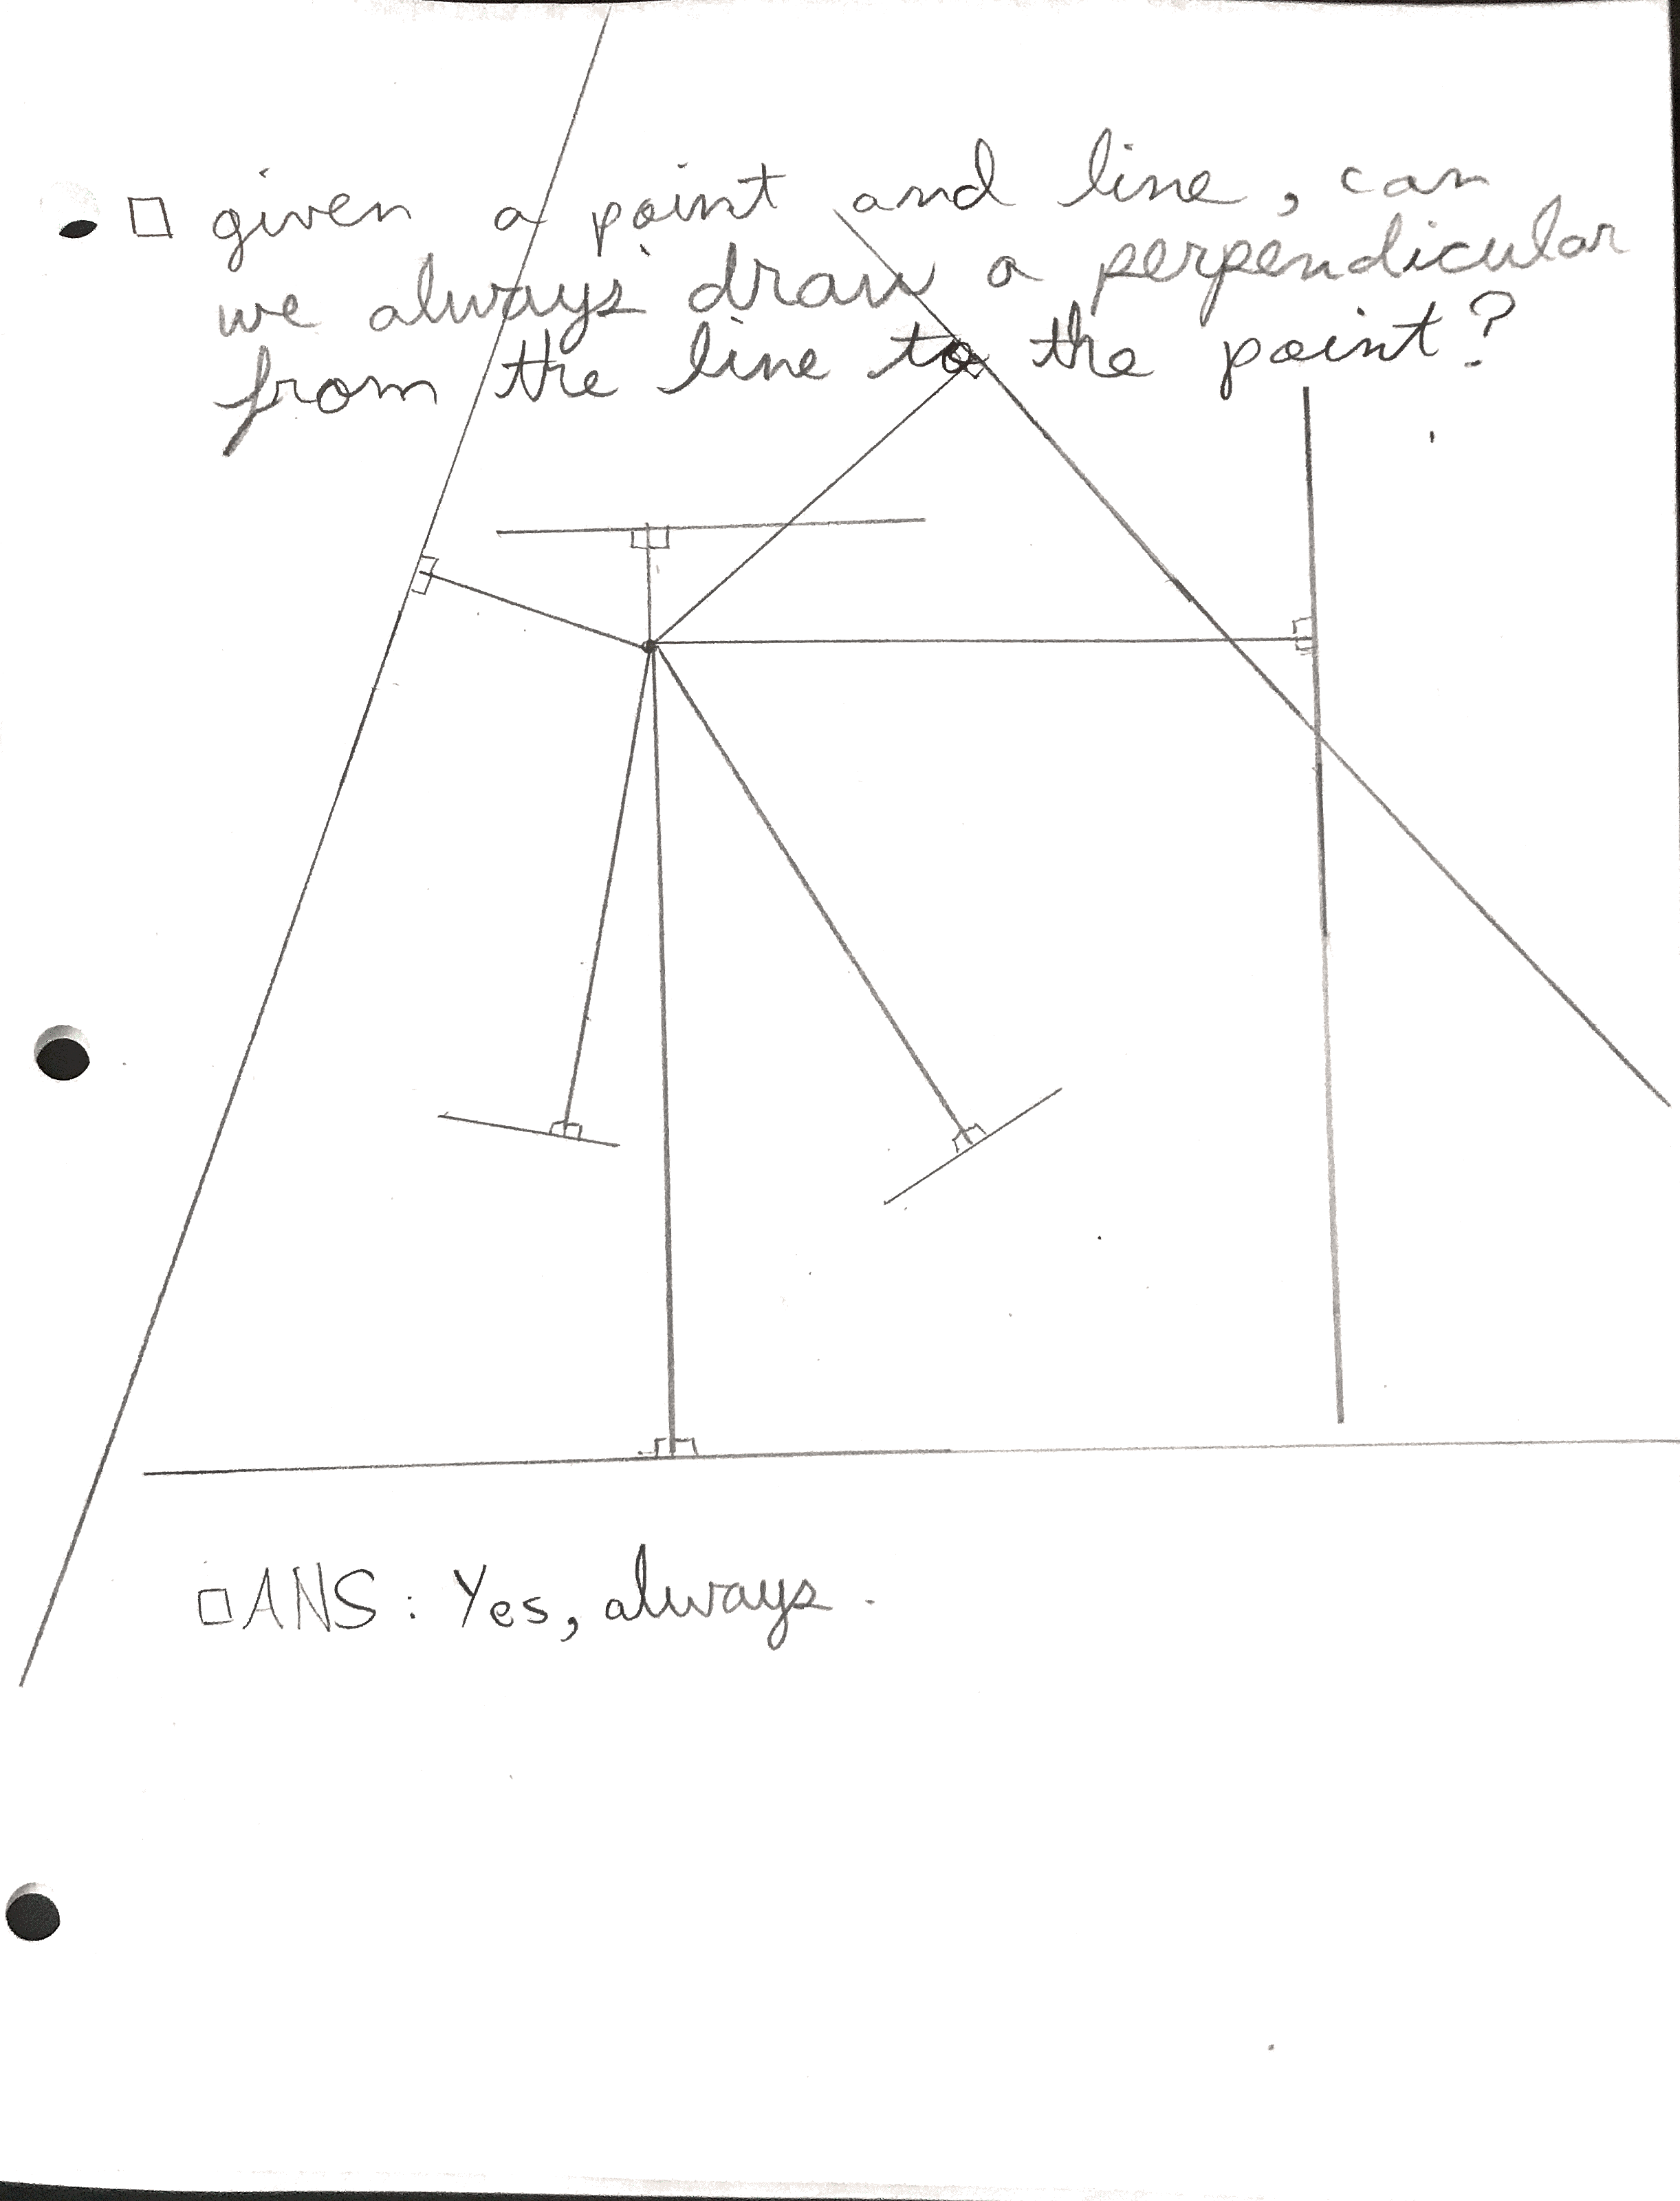 □ given a point and line, can
we always draw a perpendicular
from the line to the point?
□ ANS: Yes, always.